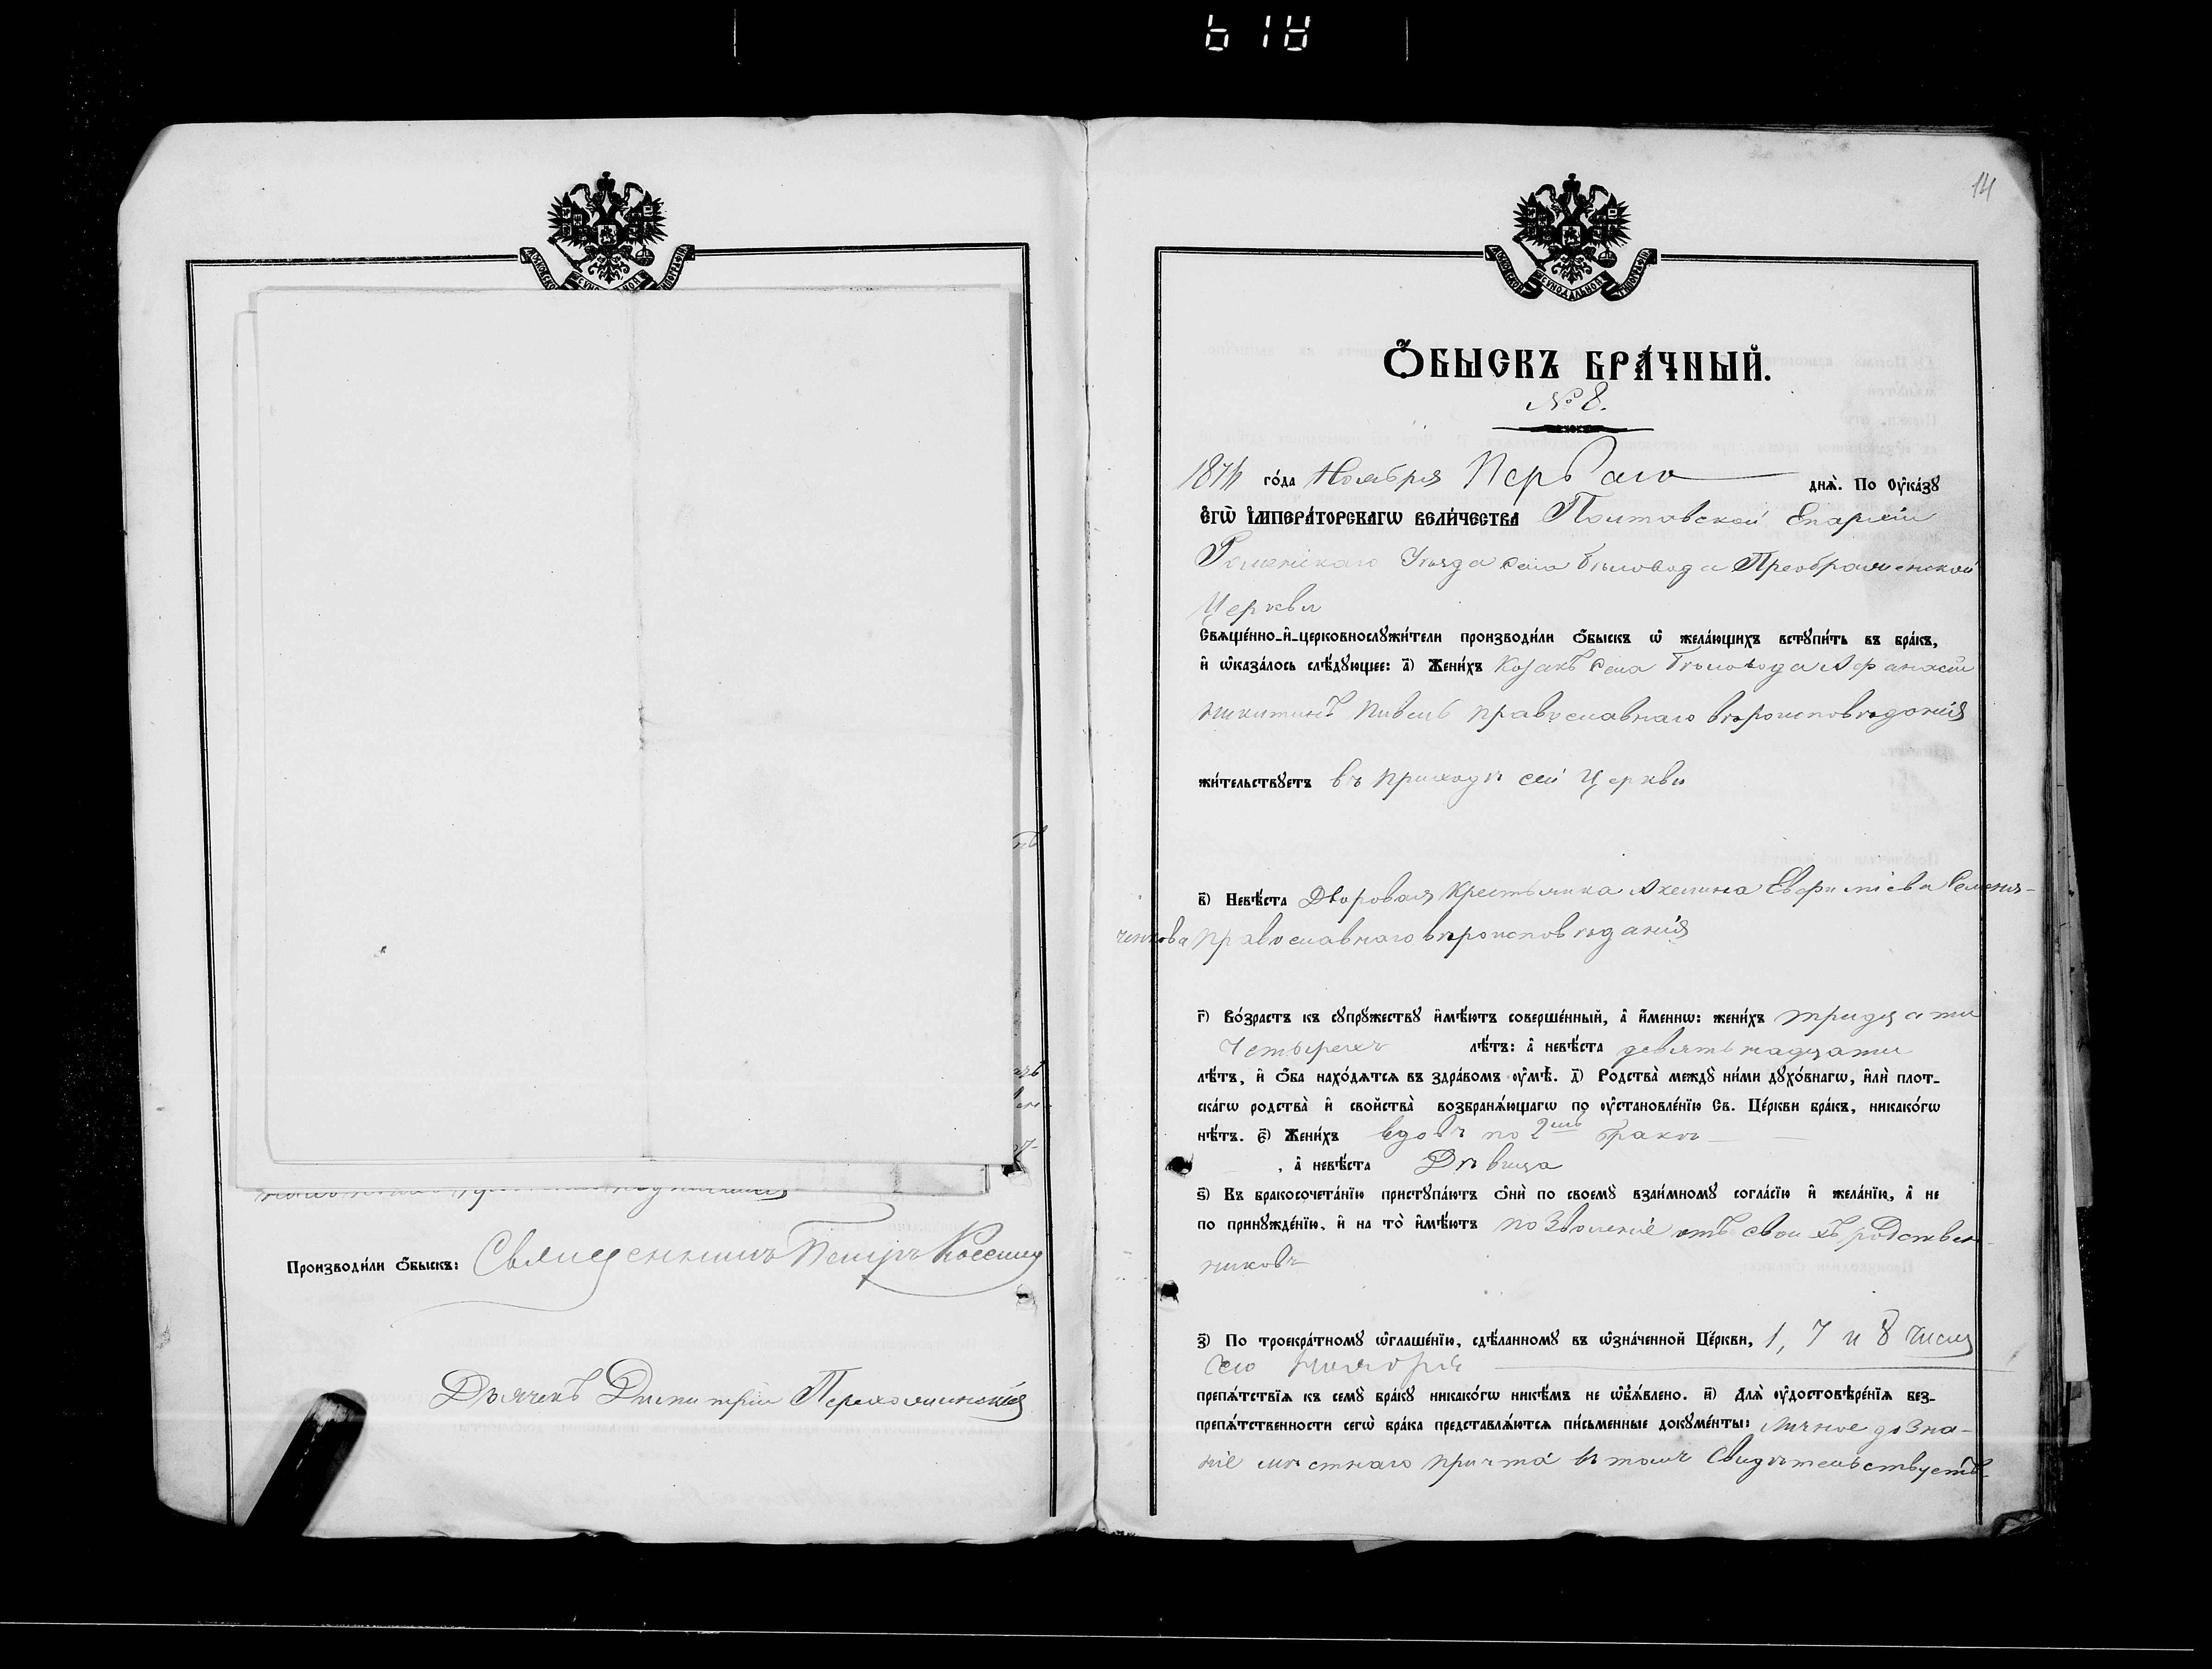 14
Производи́ли ѻ҆́быскъ: Священникъ Петръ Коссинъ
Дьячекъ Димитрій
МОСКОВСКОЙ СѴНОДАЛЬНОЙ ТИПОГРАФІИ
Ѻ҆́БЫСКЪ БРА́ЧНЫЙ.
№ 8.
1874 го́да Ноября Перваго днѧ̀. По Оу҆ка́зꙋ
Є҆ГѠ̀ І҆МПЕРА́ТОРСКАГѠ ВЕЛИ́ЧЕСТВА Полтавской Епархіи
Роменскаго Уѣзда села Бѣловода Преображенской
Церкви
Свѧще́нно-и҆-церковнослꙋжи́тели производи́ли ѻ҆́быскъ ѡ҆ жела́ющихъ встꙋпи́ть въ бра́къ,
и҆ ѡ҆каза́лось слѣ́дꙋющее: а҃) Жени́хъ Козакъ села Бѣловода Афанасій
Никитинъ Пивень православнаго вѣроисповѣданія
жи́тельствꙋетъ въ приходѣ сей Церкви
в҃) Невѣ́ста Дворовая Крестьянка Акелина Евфиміева Семеня-
ченкова православнаго вѣроисповѣданія
г҃) Во́зрастъ къ сꙋпрꙋ́жествꙋ и҆мѣ́ютъ соверше́нный, а҆ и҆́меннѡ: жени́хъ тридцати
Четырехъ лѣ́тъ: а҆ невѣ́ста девятнадцати
лѣ́тъ, и҆ ѻ҆́ба нахо́дѧтсѧ въ здра́вомъ оу҆мѣ̀. д҃) Родства̀ междꙋ̀ ни́ми дꙋхо́внагѡ, и҆лѝ плот-
ска́гѡ родства̀ и҆ сво́йства̀ возбранѧ́ющагѡ по оу҆становле́нїю Св. Це́ркви бра́къ, никако́гѡ
нѣ́тъ. є҃) Жени́хъ вдовъ по 2мъ бракѣ
, а҆ невѣ́ста Дѣвица
ѕ҃) Въ бракосочета́нїю пристꙋпа́ютъ ѻ҆нѝ по своемꙋ̀ взаи́мномꙋ согла́сїю и҆ жела́нїю, а҆ не
по принꙋжде́нїю, и҆ на то̀ и҆мѣ́ютъ позволеніе отъ своихъ родствен-
никовъ
з҃) По троекра́тномꙋ ѡ҆глаше́нїю, сдѣ́ланномꙋ въ ѡ҆зна́ченной Це́ркви, 1, 7 и 8 числа
сего Ноября
препѧ́тствїѧ къ семꙋ̀ бра́кꙋ никако́гѡ никѣ́мъ не ѡ҆б̾ѧ́влено. и҃) Длѧ̀ оу҆достовѣре́нїѧ без-
препѧ́тственности сегѡ̀ бра́ка представлѧ́ютсѧ пи́сьменные докꙋме́нты: личное дозна-
ніе мѣстнаго причта въ томъ свидѣтельствуетъ